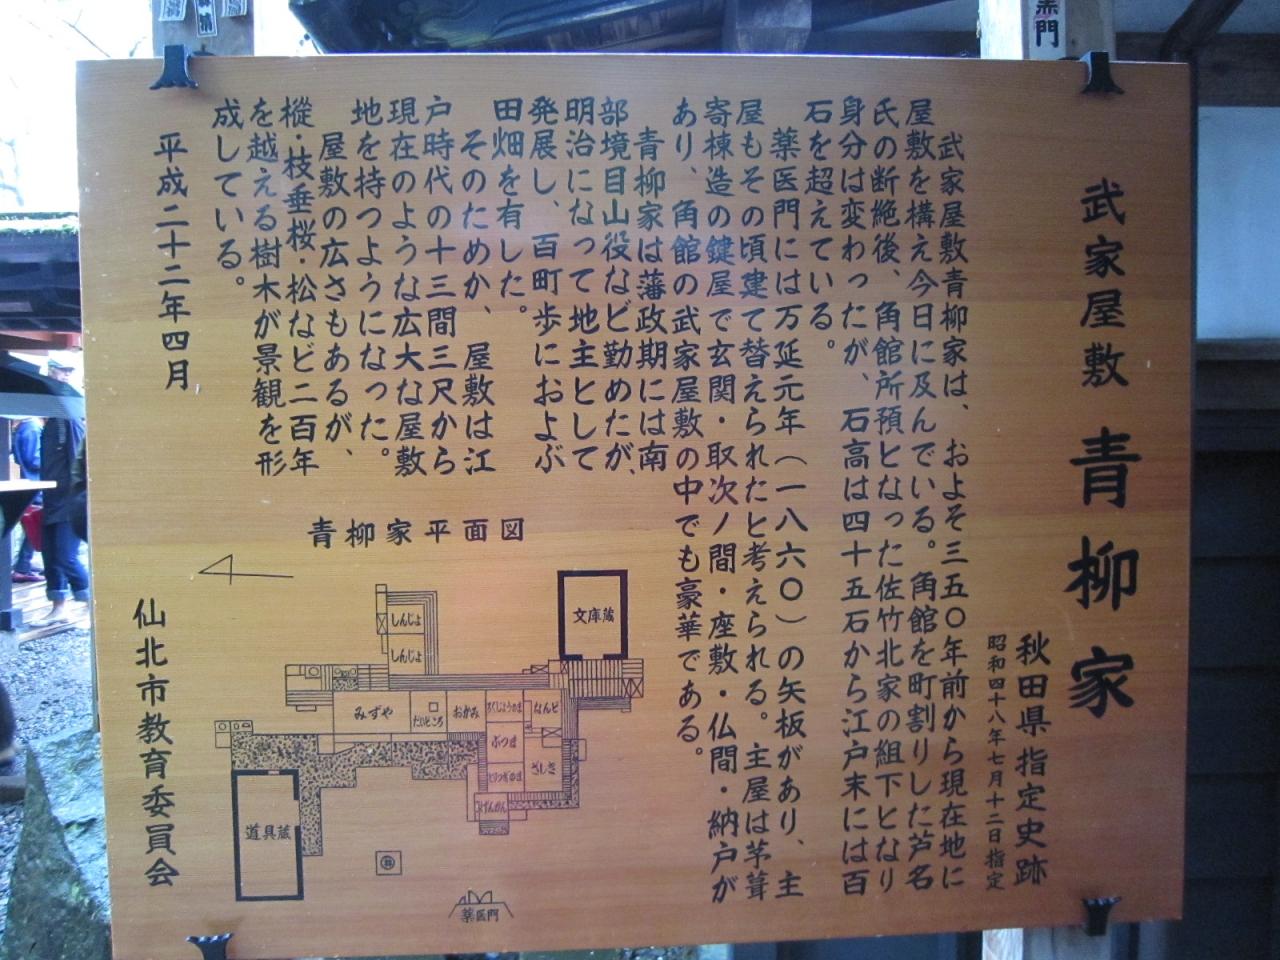 武家屋敷 青柳家
秋田県指定史跡
昭和四十八年七月十二日指定
武家屋敷青柳家は、およそ三五〇年前から現在地に
屋敷を構え今日に及んでいる。角館を町割りした芦名
氏の断絶後、角館所預となった佐竹北家の組下となり
身分は変わったが、石高は四十五石から江戸末には百
石を超えている。
薬医門には万延元年（一八六〇）の矢板があり、主
屋もその頃建て替えられたと考えられる。主屋は茅葺
寄棟造の鍵屋で玄関・取次ノ間・座敷・仏間・納戸が
あり、角館の武家屋敷の中でも豪華である。
青柳家は藩政期には南
部境目山役など勤めたが、
明治になって地主として
発展し、百町歩におよぶ
田畑を有した。
そのためか、屋敷は江
戸時代の十三間三尺から
現在のような広大な屋敷
地を持つようになった。
屋敷の広さもあるが、
樅・枝垂桜・松など二百年
を越える樹木が景観を形
成している。
平成二十二年四月
仙北市教育委員会
青柳家平面図
文庫蔵
しんじょ
しんじょ
みずや
だいどころ
おかみ
ろくじょうのま
なんど
ぶつま
ざしき
とりつぎのま
げんかん
道具蔵
薬医門
黒門